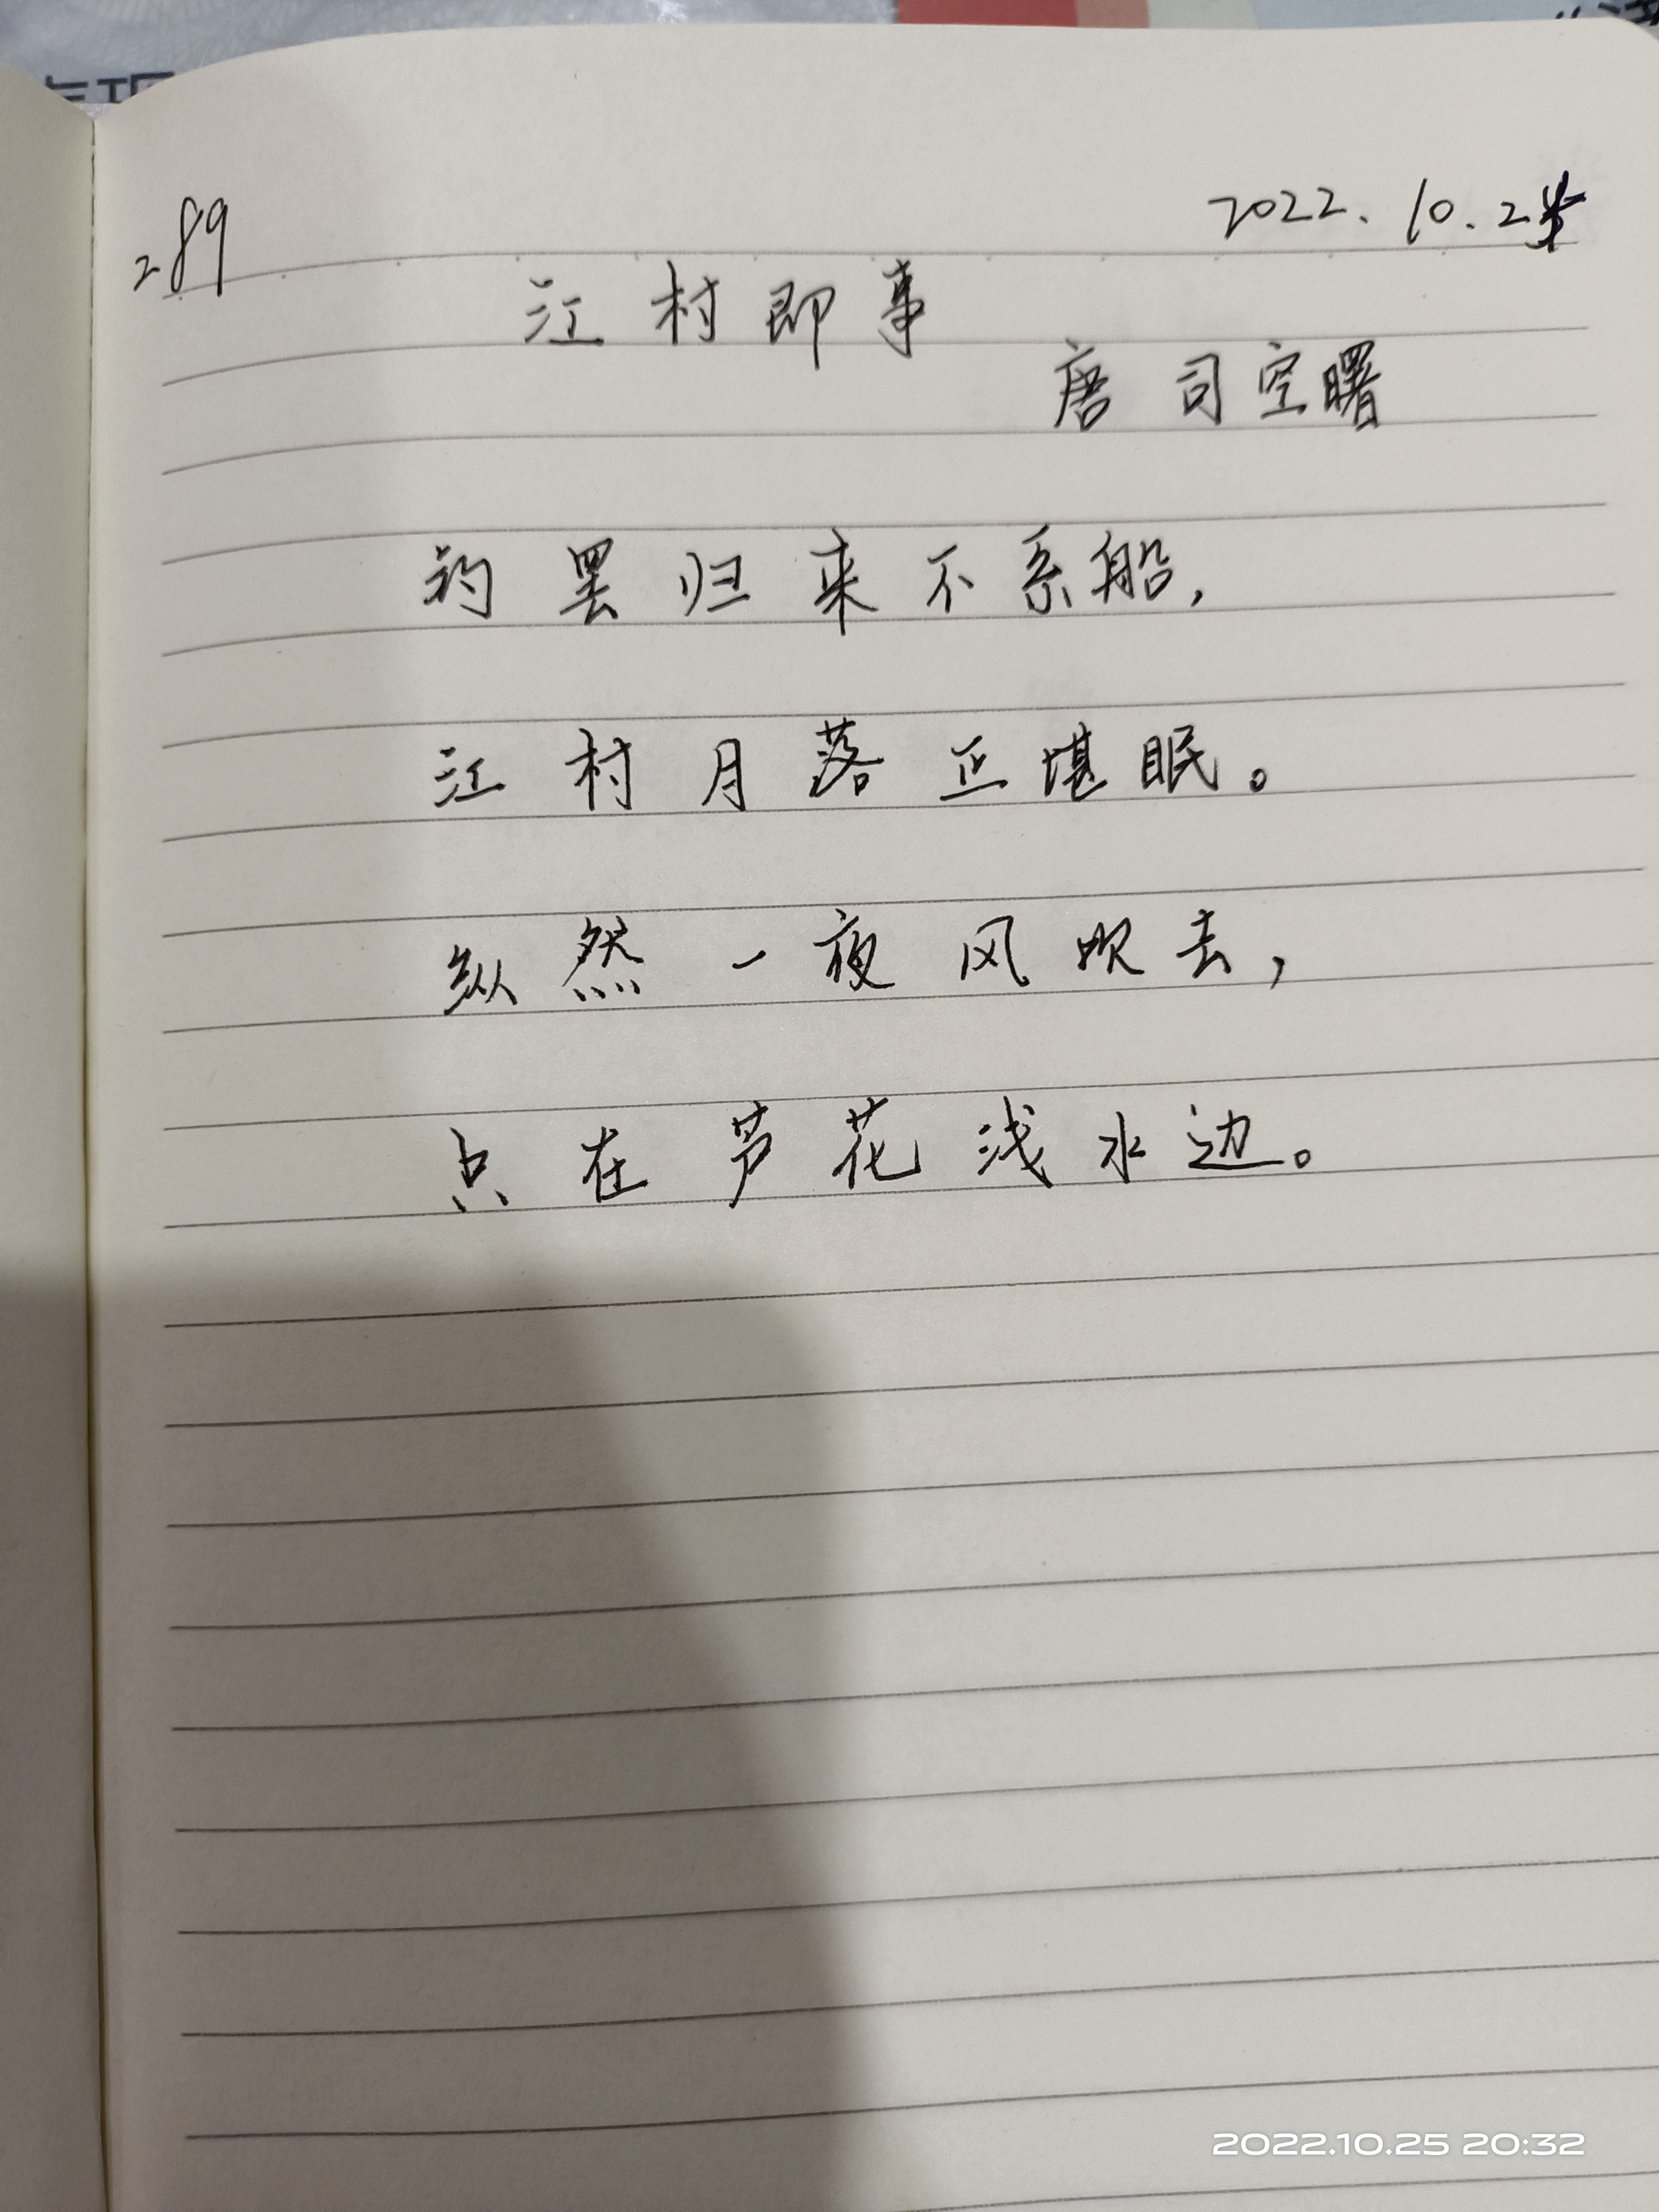 289
2022.10.25
江村即事
唐 司空曙
钓罢归来不系船,
江村月落正堪眠。
纵然一夜风吹去,
点在芦花浅水边。
2022.10.25 20:32